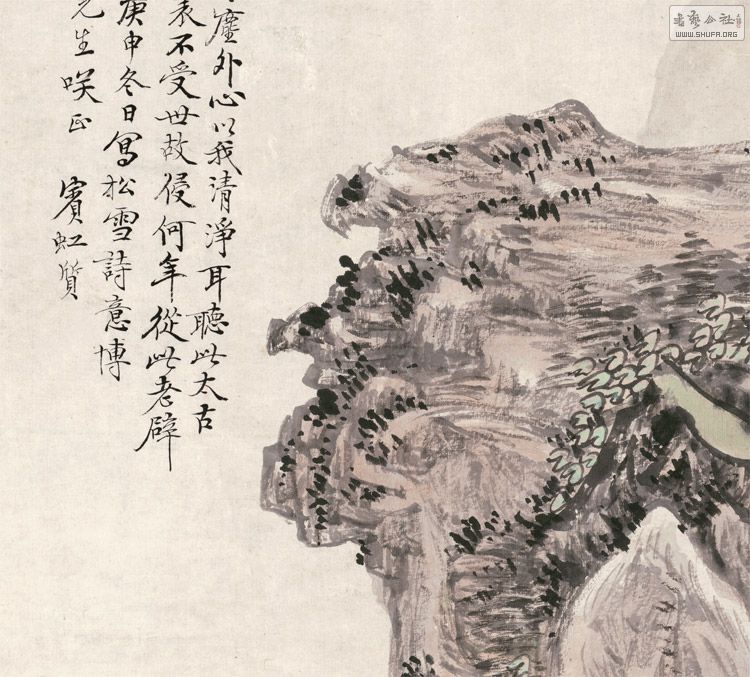 塵外心以我清淨耳聽此太古
不受世故侵何年從此老辟
庚申冬日寫松雪詩意博
先生咲正 賓虹質
书艺公社
WWW.SHUFA.ORG